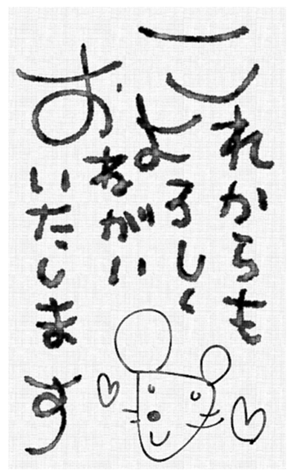 これからも
よろしく
おねがい
いたします